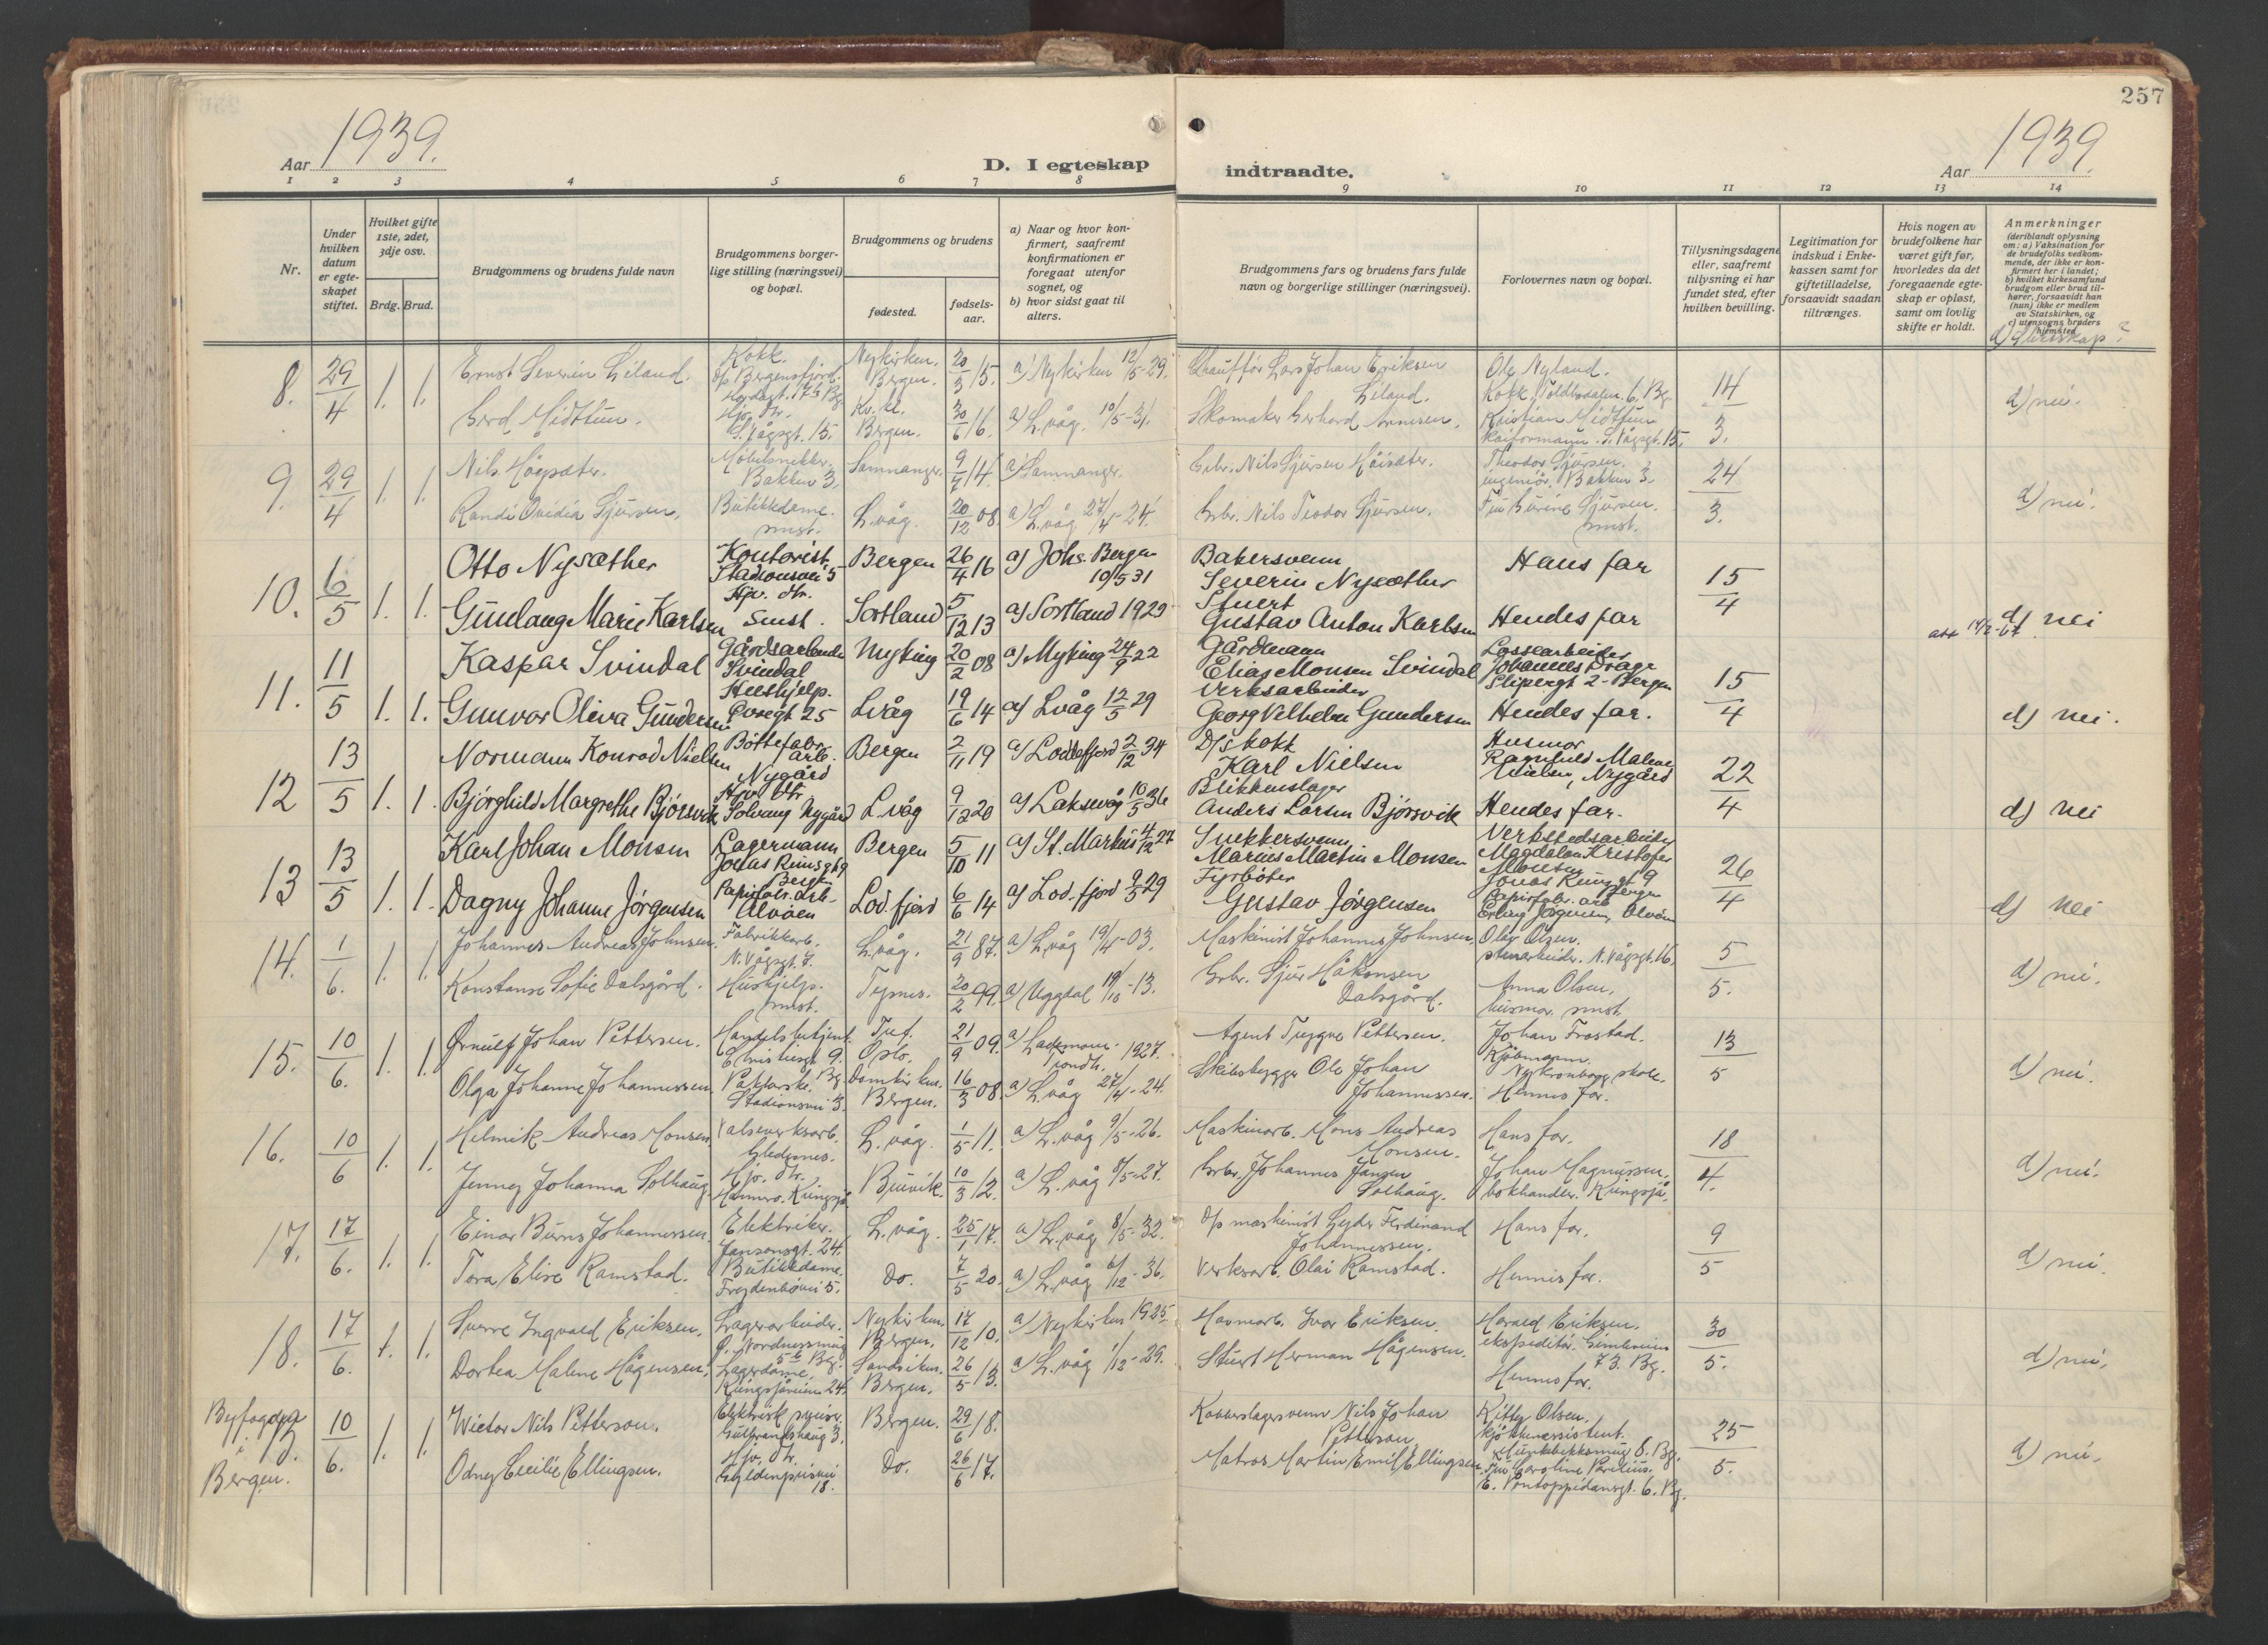 257
Aar 1939.
D. I egteskap indtraadte.
Aar 1939.
1 2 3 4 5 6 7 8 9 10 11 12 13 14
Nr.
Under hvilken datum er egte-skapet stiftet.
Hvilket gifte 1ste, 2det, 3dje osv.
Brdg. Brud.
Brudgommens og brudens fulde navn
Brudgommens borger-lige stilling (næringsvei) og bopæl.
Brudgommens og brudens
fødested.
fødsels-aar.
a) Naar og hvor kon-firmert, saafremt konfirmationen er foregaat utenfor sognet, og
b) hvor sidst gaat til alters.
Brudgommens fars og brudens fars fulde navn og borgerlige stillinger (næringsvei).
Forlovernes navn og bopæl.
Tillysningsdagene eller, saafremt tillysning ei har fundet sted, efter hvilken bevilling.
Legitimation for indskud i Enke-kassen samt for giftetilladelse, forsaavidt saadan tiltrænges.
Hvis nogen av brudefolkene har været gift før, hvorledes da det foregaaende egte-skap er opløst, samt om lovlig skifte er holdt.
Anmerkninger
(deriblandt oplysning om: a) Vaksination for de brudefolks vedkom-mende, der ikke er kon-firmert her i landet; b) hvilket kirkesamfund brudgom eller brud til-hører, forsaavidt han (hun) ikke er medlem av Statskirken, og c) utensogns bruders hjemsted
d) Slektskap?
8. 29/4 1. 1.
Ernst Severin Liland. Kokk. D/s Bergensfjord. Nykirken. Bergen. 20/3 15. a) Nykirken 12/5-29. Chauffør Lars Johan Eriksen Liland. Ole Nyland. Kokk 6. Bg. 14/3. d) nei.
Gerd Midttun. Hjv. dtr. S. Vågsgt. 15. Kv. kl. Bergen. 30/6 16. a) L.våg. 10/5-31. Skomaker Gerhard Arnesen. Kristian Midttun Kaiformann. S. Vågsgt. 15.
9. 29/4 1. 1.
Nils Høysæter. Møbelsnekker. Bakken 3. Samnanger. 9/7 14. a) Samnanger. Grbr. Nils Sjursen Høisæter. Theodor Sjursen. ingeniør. Bakken 3. 24/3. d) nei.
Randi Ovidia Sjursen. Butikkdame. smst. L.våg. 20/12 08. a) L.våg 27/4-24. Grbr. Nils Teodor Sjursen. smst.
10. 6/5 1. 1.
Otto Nysæther Kontorist. Stadionsvei 5 Bergen 26/4 16 a) Johs. Bergen 10/5 31 Bakersvenn Severin Nysæther Hans far 15/4
Gunlaug Marie Karlsen Hjv. dtr. Smst. Sortland 5/12 13 a) Sortland 1929 Stuert Gustav Anton Karlsen Hendes far d) nei
11. 11/5 1. 1.
Kaspar Svindal Gårdsarbeider Svindal Myking 20/2 08 a) Myking 24/9 22 Gårdmann Elias Monsen Svindal Lossearbeider Johannes Drage Slipergt 2 - Bergen 15/4
Gunvor Oliva Gundersen Hushjelp. 25 L.våg 19/6 14 a) L.våg 12/5 29 Verksarbeider Georg Vilhelm Gundersen Hendes far. d) nei.
12 13/5 1. 1.
Normann Konrad Nielsen Bøttefabr. arb. Nygård Bergen 2/11 19 a) Loddefjord 2/12 34 D/s kokk Karl Nielsen Husmor Ragnhild Malene Nielsen, Nygård 22/4
Bjørghild Margrethe Bjørsvik Hjv. dtr. Solvang Nygård L.våg 9/12 20 a) Laksevåg 10/5 36 Blikkenslager Anders Larsen Bjørsvik Hendes far. d) nei
13 13/5 1. 1.
Karl Johan Monsen Lagermann Jonas Reinsgt 9 Berg. Bergen 5/10 11 a) St. Markus 4/12 27 Snekkersvenn Marius Martin Monsen Verkstedsarbeider Magdalon Kristofer Monsen Jonas Reinsgt 9 Bergen 26/4
Dagny Johanne Jørgensen Papirfabr. arb. Alvøen Lod.fjord 6/6 14 a) Lod.fjord 9/5 29 Fyrbøter Gustav Jørgensen Papirfabr. arb Erling Jørgensen, Alvøen d) nei
14. 1/6. 1. 1.
Johannes Andreas Johnsen. Fabrikkarb. N. Vågsgt. 7. L.våg. 21/9 87. a) L.våg 19/4-03. Maskinist Johannes Johnsen. Olav Olsen. stuearbeider. N. Vågsgt. 16. 5/5. d) nei.
Konstanse Sofie Dalsgård. Hushjelp. smst. Tysnes. 20/2 99. a) Uggdal 19/10-13. Grbr. Sjur Håkonsen Dalsgård. Anna Olsen. husmor. smst.
15. 10/6. 1. 1.
Ørnulf Johan Pettersen. Handelsbetjent. Christiesgt 9. Bg. Oslo. 21/9 09. a) Trondh. 1927. Agent Trygve Pettersen. Johan Frostad. Kjøbmann. Ny Kronborg skole. 13/5 d) nei.
Olga Johanne Johannessen Pakkerske. Stadionsvei 3. Domkirken. Bergen. 16/3 08. a) L.våg 27/4-24. Skibsbygger Ole Johan Johannessen. Hennes far.
16. 10/6 1. 1.
Helmik Andreas Monsen Valseverksarb. L.våg. 1/5 11. a) L.våg 9/5-26. Maskinarb. Mons Andreas Monsen. Hans far. 18/4. d) nei.
Jenny Johanna Solhaug. Hjv. dtr. Kringsjå Bruvik. 10/3 12. a) L.våg 8/5-27. Grbr. Johannes Jansen Solhaug. Johan Magnussen. bokhandler. Kringsjå.
17. 17/6. 1. 1.
Einar Børns Johannessen. Elektriker. Jansonsgt. 24. L.våg. 25/1 17. a) L.våg 8/5-32. D/s maskinist Lyder Ferdinand Johannessen. Hans far. 9/5 d) nei.
Tora Elise Ramstad. Butikkdame. Frydenbøvei 5. Do. 7/5 20. a) L.våg 6/12-36. Verksarb. Olai Ramstad. Hennes far.
18. 17/6. 1. 1.
Sverre Ingvald Eriksen. Lagerarbeider. Ø. Nordnessmug 5 b Bg. Nykirken. Bergen. 17/12 10. a) Nykirken 1925. Havnearb. Ivar Eriksen. Harald Eriksen. ekspeditør. 73. Bg. 30/5. d) nei.
Dortea Malene Hågensen. Lagerdame. Kringsjåveien 24. Sandviken. Bergen. 26/5 13. a) L.våg 1/12-29. Stuert Herman Hågensen. Hennes far.
Byfogden i Bergen. 10/6. 1. 1.
Wictor Nils Petterson. Elektrisk sveiser. Gulbrandshaug 3. Bergen. 29/6 18. Kobberslagersvenn Nils Johan Petterson Kitty Olsen. Munkebekksmug 8. Bg. 25/5. d) nei.
Odny Cecilie Ellingsen. Hjv. dtr. Gyldenprisvei 18. Do. 26/6 17. Matros Martin Emil Ellingsen. Fru Caroline E. Pontoppidansgt. 6. Bg.